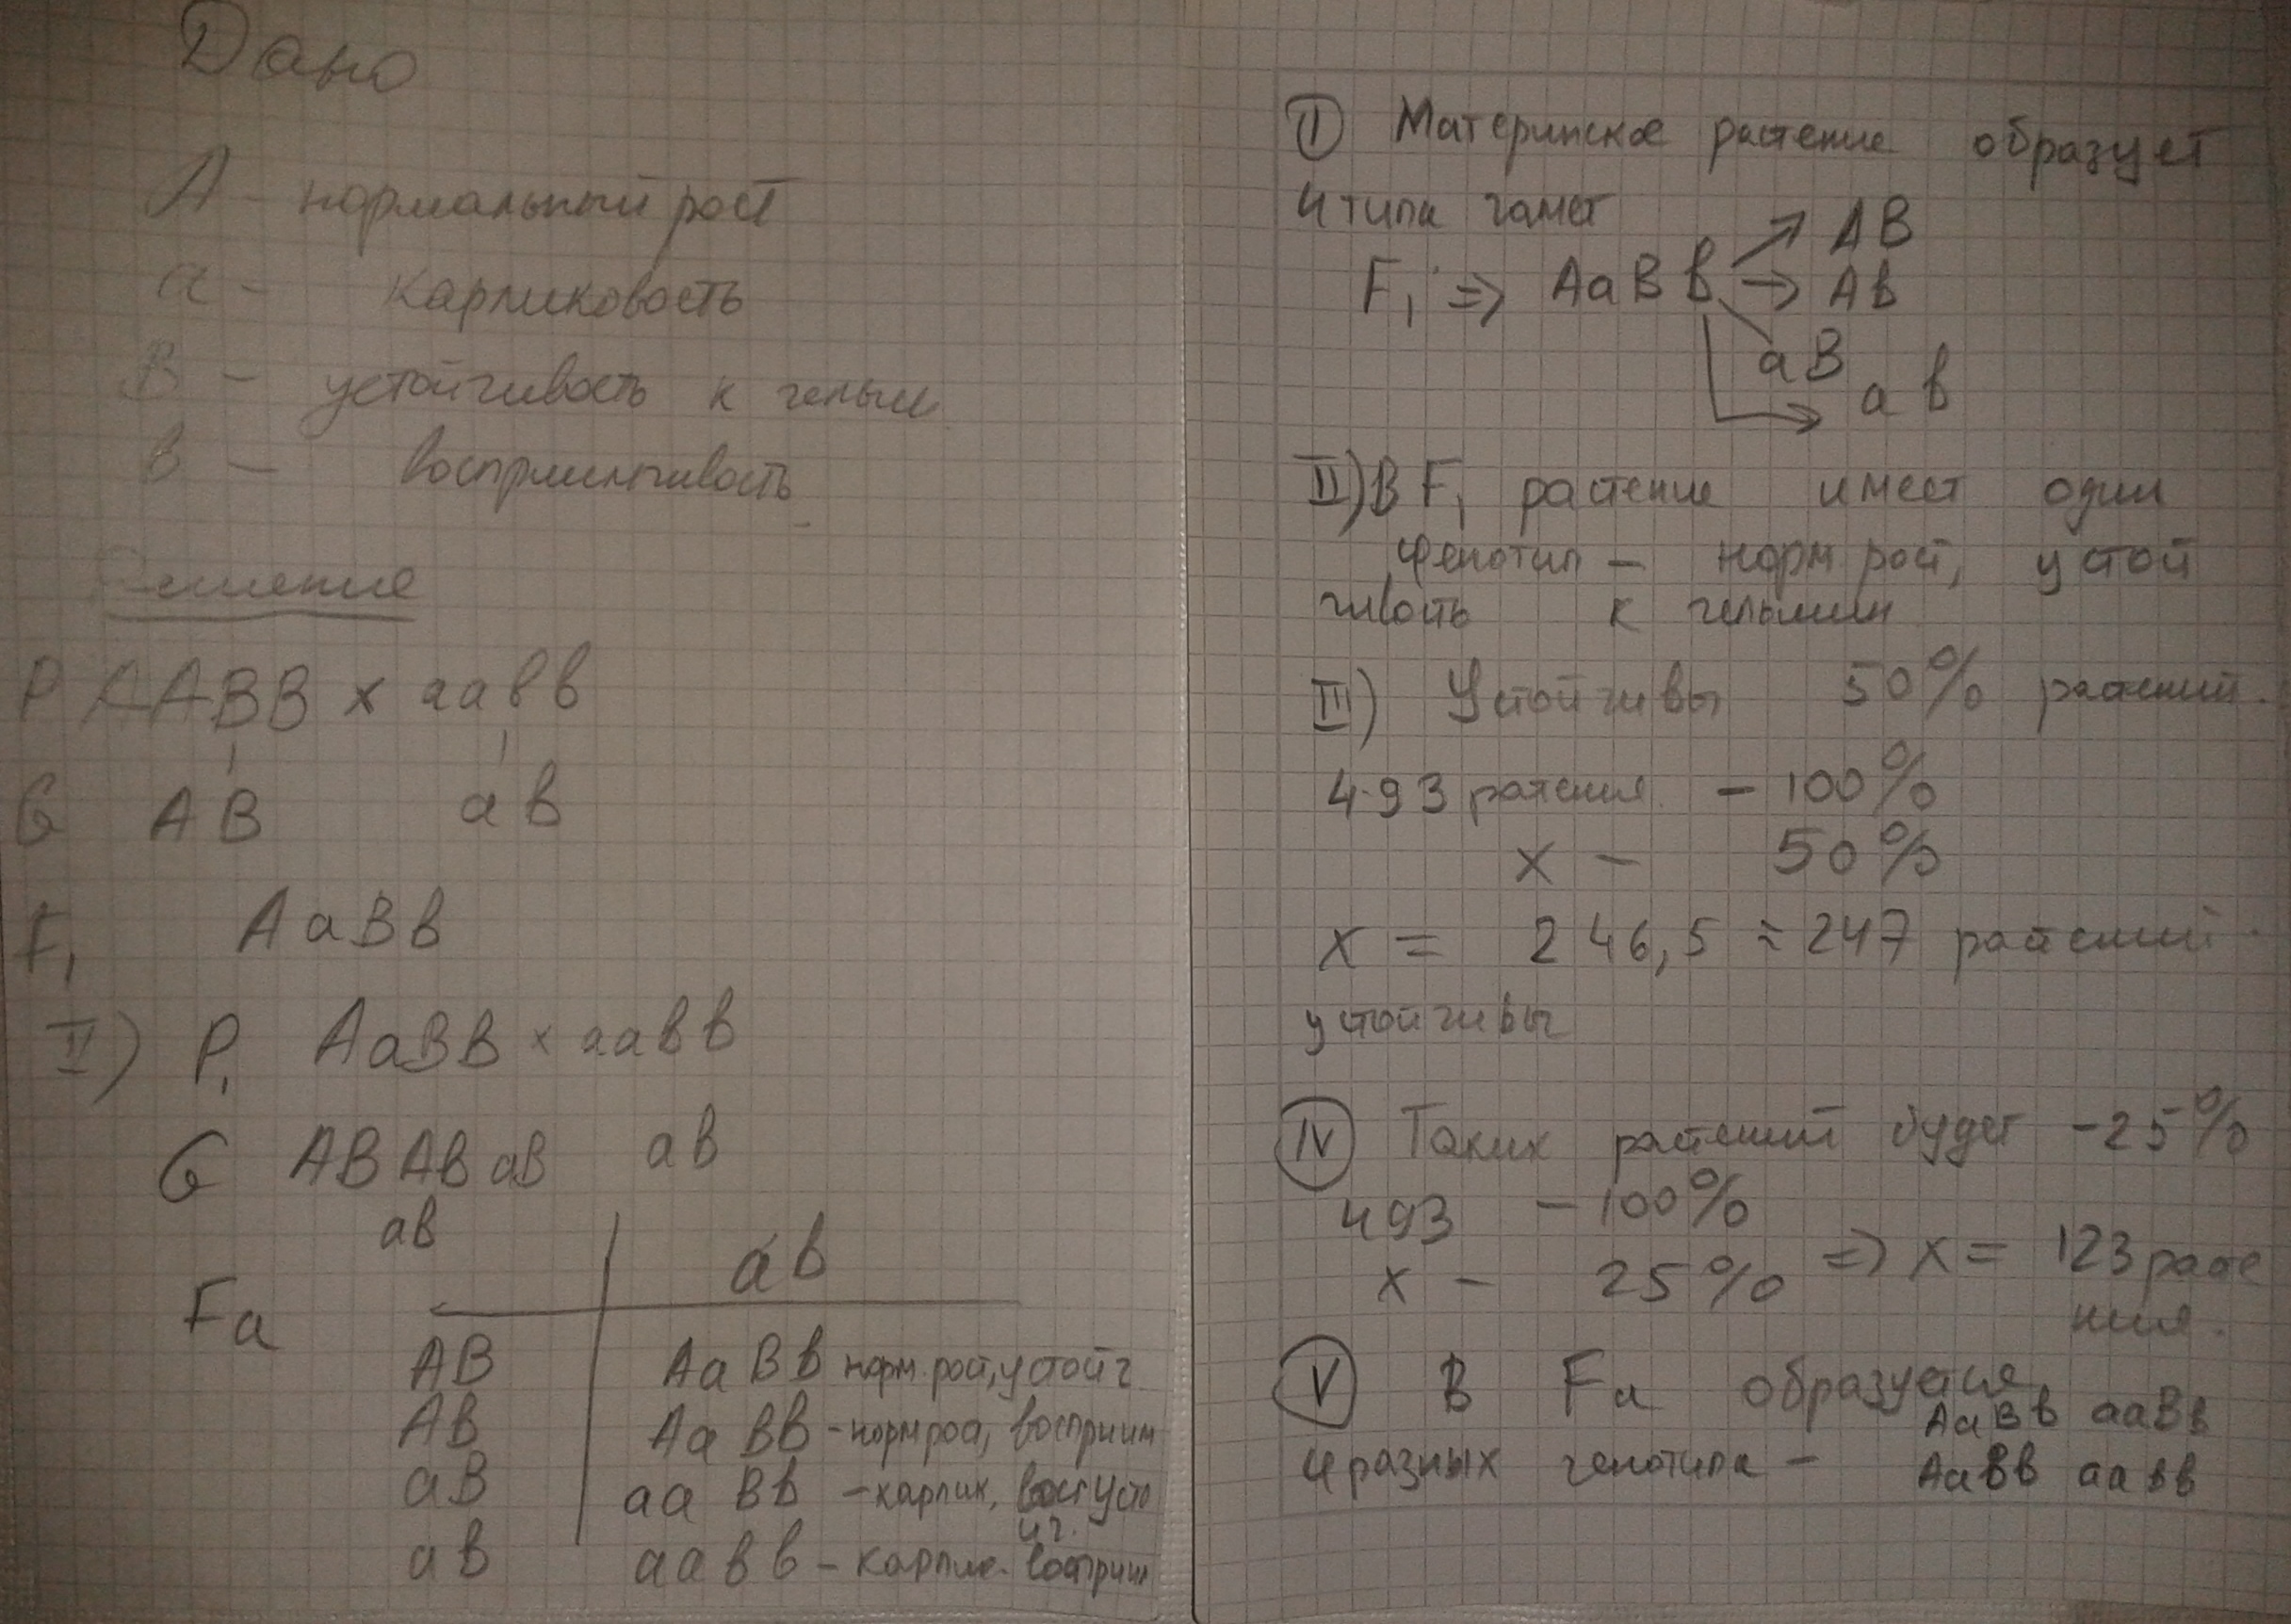 Дано
А - нормальный рост
а - карликовость
В - устойчивость к гельм
в - восприимчивость
Решение
Р ААВВ х аавв
G АВ ав
F1 АаВв
II) Р1 АаВв х аавв
G АВ Ав аВ ав
ав
Fa ав
АВ АаВв норм. рост, устойч
Ав Аавв - норм рос, восприим
аВ ааВв - карлик, усто
йч.
ав аавв - карлик. восприим
I Материнское растение образует
4 типа гамет
АВ
F1 => АаВв → Ав
аВ
ав
II) В F1 растение имест один
фенотип - норм. рост, устой
чивость к гельмин
III) Устойчивы 50% растений.
493 ратения - 100%
х - 50%
х = 246,5 ≈ 247 ратений
устойчивы
IV Таких растений будет - 25%
493 - 100%
х - 25% => х = 123 расте
ния.
V В Fa образуется
АаВв ааВв
4 разных генотипа - Аавв аавв